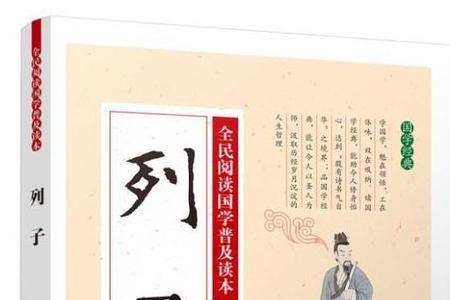 全民阅读国学普及读本
列子
列
全民阅读国学普及读本
国学经典
学国学，勉在顿悟，工在
体味，放在吸纳。读国
学经典，能助今人修身怡
心，达到“腹有诗书气自
华”之境界；品国学经
典，能让今人以圣人为
师，汲取历经岁月沉淀的
人生哲理。